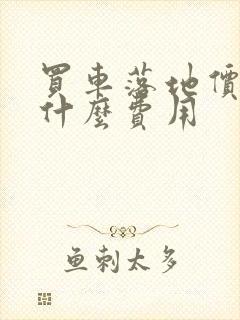 買車落地價
什麼費用
魚刺太多